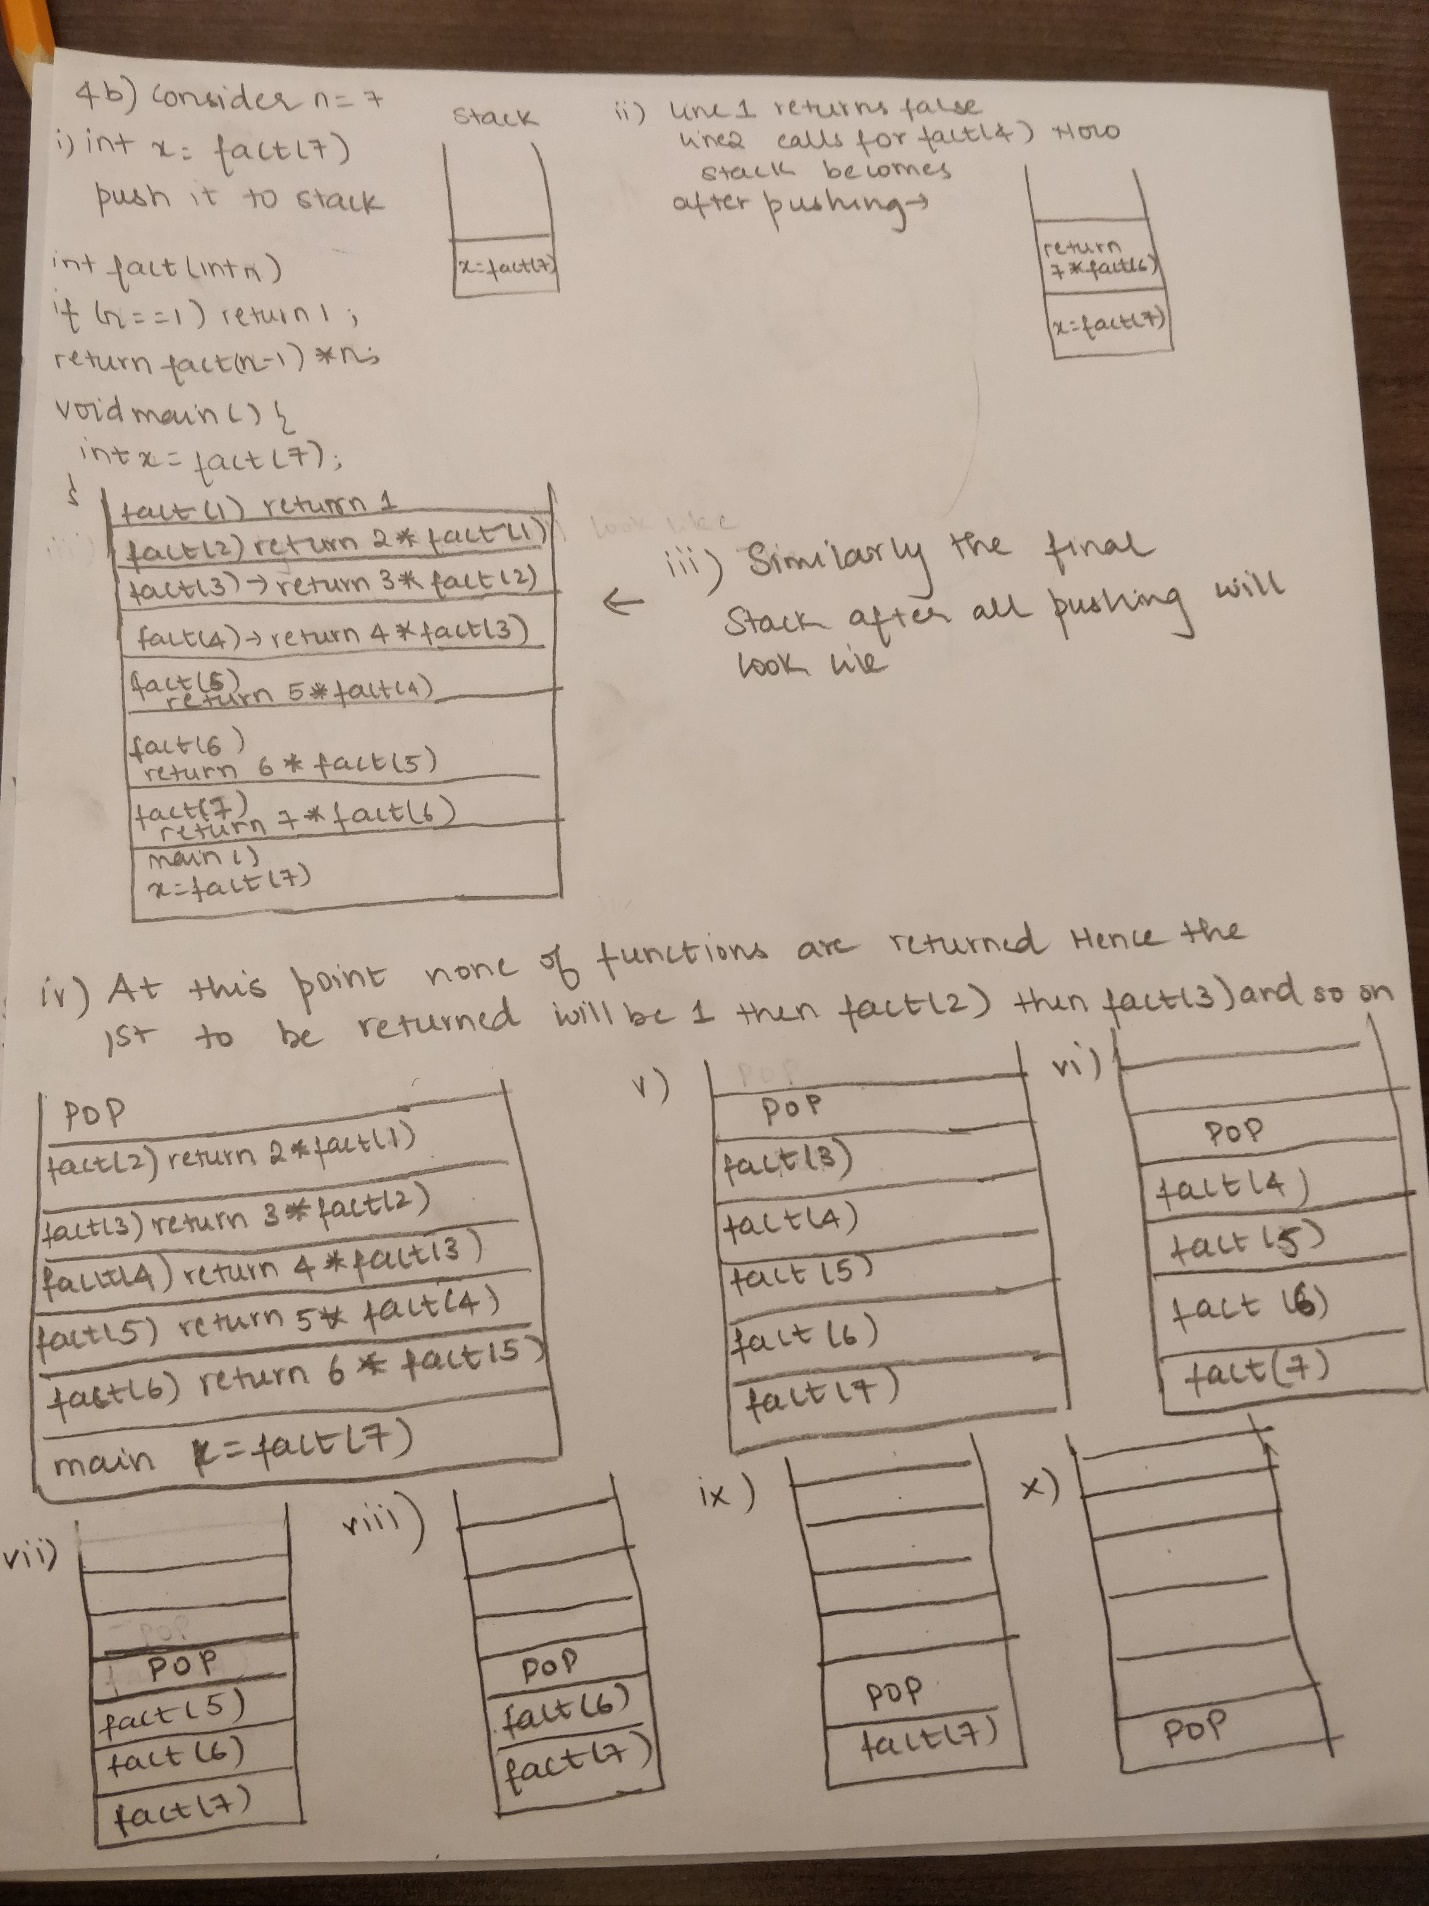 4b) Consider n=7
i) int x= fact(7)
push it to stack
stack
x=fact(7)
ii) line 1 returns false
line2 calls for fact(4) Now
stack becomes
after pushing→
return
7*fact(6)
x=fact(7)
int fact(int n)
if (n==1) return 1;
return fact(n-1)*n;
void main() {
int x= fact(7);
}
fact(1) return 1
fact(2) return 2* fact(1)
fact(3)→return 3* fact(2)
fact(4)→return 4*fact(3)
fact(5)
return 5*fact(4)
fact(6)
return 6* fact(5)
fact(7)
return 7*fact(6)
main()
x=fact(7)
← iii) Similarly the final
Stack after all pushing will
look like
iv) At this point none of functions are returned Hence the
1st to be returned will be 1 then fact(2) then fact(3) and so on
POP
fact(2) return 2*fact(1)
fact(3) return 3*fact(2)
fact(4) return 4*fact(3)
fact(5) return 5* fact(4)
fact(6) return 6* fact(5)
main x=fact(7)
v)
POP
fact(3)
fact(4)
fact(5)
fact(6)
fact(7)
vi)
POP
fact(4)
fact(5)
fact(6)
fact(7)
vii)
POP
fact(5)
fact(6)
fact(7)
viii)
POP
fact(6)
fact(7)
ix)
POP
fact(7)
x)
POP